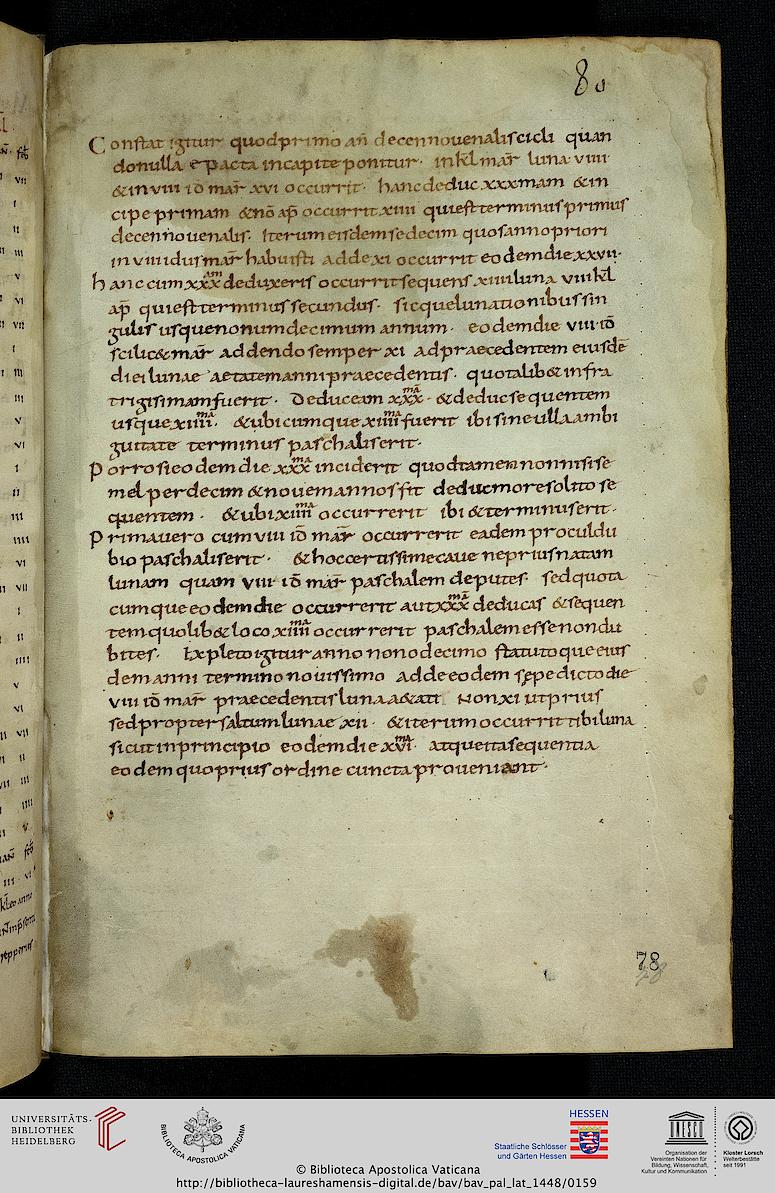 80
Constat igitur quod primo an̄ decennovenalis cicli quan
do nulla epacta in capite ponitur· in kł mar̄ luna viiii·
& in viii id̄ mar̄ xvi occurrit· hanc deduc xxxmam & in
cipe primam & nō ap̄ occurrit xiiii qui est terminus primus
decennovenalis· Iterum eisdem sedecim quos anno priori
in viii idus mar̄ habuisti adde xi occurrit eodem die xxvii·
hanc cum xxxam deduxeris occurrit sequens xiiii luna viii kł
ap̄ qui est terminus secundus· sicque lunationibus sin
gulis usque nonum decimum annum· eodem die viii id̄
scilic& mar̄ addendo semper xi ad praecedentem eiusdē
diei lunae aetatem anni praecedentis· quotalib& infra
trigisimam fuerit· Deduc eam xxxma· & deduc sequentem
usque xiiiima· & ubicumque xiiiima fuerit ibi sine ulla ambi
guitate terminus paschalis erit·
Porro si eodem die xxxma inciderit quod tamen non nisi se
mel per decim & novem annos fit deduc more solito se
quentem· & ubi xiiiima occurrerit ibi & terminus erit·
Prima vero cum viii id̄ mar̄ occurrerit eadem procul du
bio paschalis erit· & hoc certissime cave ne prius natam
lunam quam viii id̄ mar̄ paschalem deputes· sed quota
cumque eodem die occurrerit aut xxxma deducas & sequen
tem quolib& loco xiiiima occurrerit paschalem esse non du
bites· Expleto igitur anno nono decimo statutoque eius
dem anni termino novissimo adde eodem sępe dicto die
viii id̄ mar̄ praecedentis lunae a&ati Non xi ut prius
sed propter saltum lunae xii· & iterum occurrit tibi luna
sicut in principio eodem die xvima· atque ita sequentia
eodem quo prius ordine cuncta proveniant·
78
UNIVERSITÄTS-
BIBLIOTHEK
HEIDELBERG
BIBLIOTECA APOSTOLICA VATICANA
© Biblioteca Apostolica Vaticana
http://bibliotheca-laureshamensis-digital.de/bav/bav_pal_lat_1448/0159
HESSEN
Staatliche Schlösser
und Gärten Hessen
UNESCO
Organisation der
Vereinten Nationen für
Bildung, Wissenschaft,
Kultur und Kommunikation
Kloster Lorsch
Welterbestätte
seit 1991